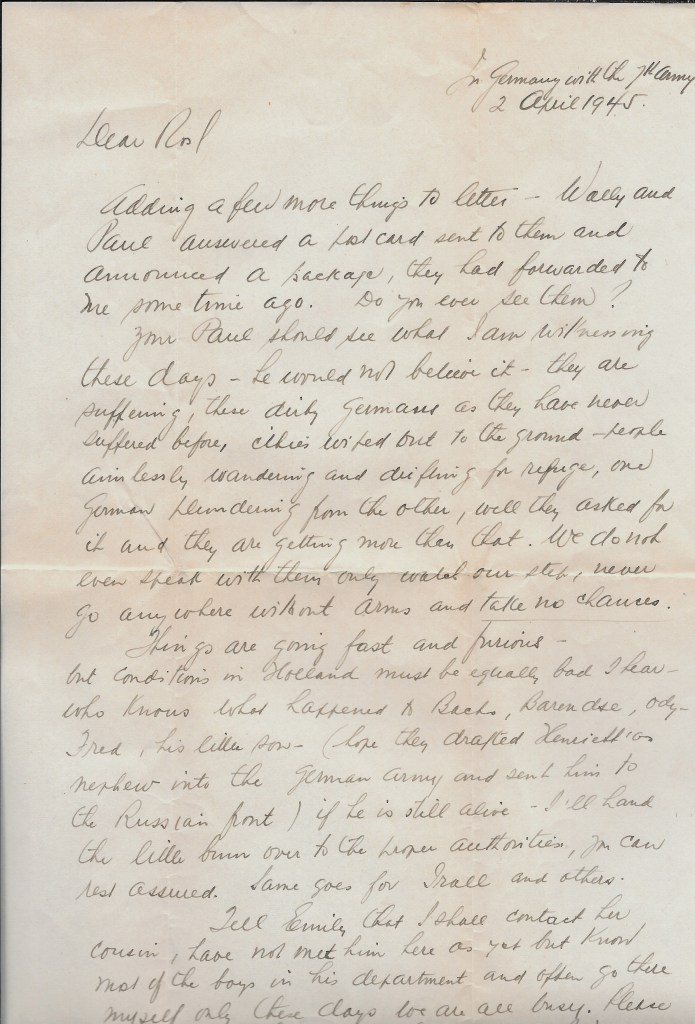 In Germany with the 7th Army
2 April 1945.
Dear Rosl
Adding a few more things to letter – Wally and
Paul answered a postcard sent to them and
announced a package, they had forwarded to
me some time ago. Do you ever see them?
Your Paul should see what I am witnessing
these days – he would not believe it – they are
suffering, these dirty Germans as they have never
suffered before, cities wiped out to the ground – people
aimlessly wandering and drifting for refuge, one
German plundering from the other, well they asked for
it and they are getting more than that. We do not
even speak with them only watch our step, never
go anywhere without arms and take no chances.
Things are going fast and furious –
but conditions in Holland must be equally bad I hear –
who knows what happened to Bachs, Barendse, Ody–
Fred, his little son – (hope they drafted Henrietta's
nephew into the German Army and sent him to
the Russian front) if he is still alive – I'll hand
the little bum over to the proper authorities, you can
rest assured. Same goes for and others.
Tell Emily that I shall contact her
cousin, have not met him here as yet but know
most of the boys in his department and often go there
myself only these days we are all busy. Please